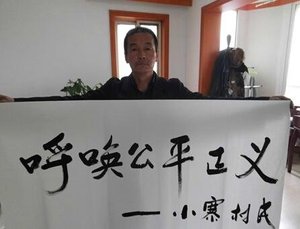 呼唤公平正义
——小寨村民